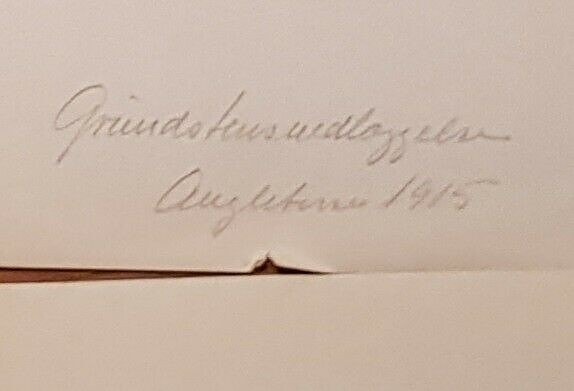 Grundstensnedlæggelse
Angleterre 1915